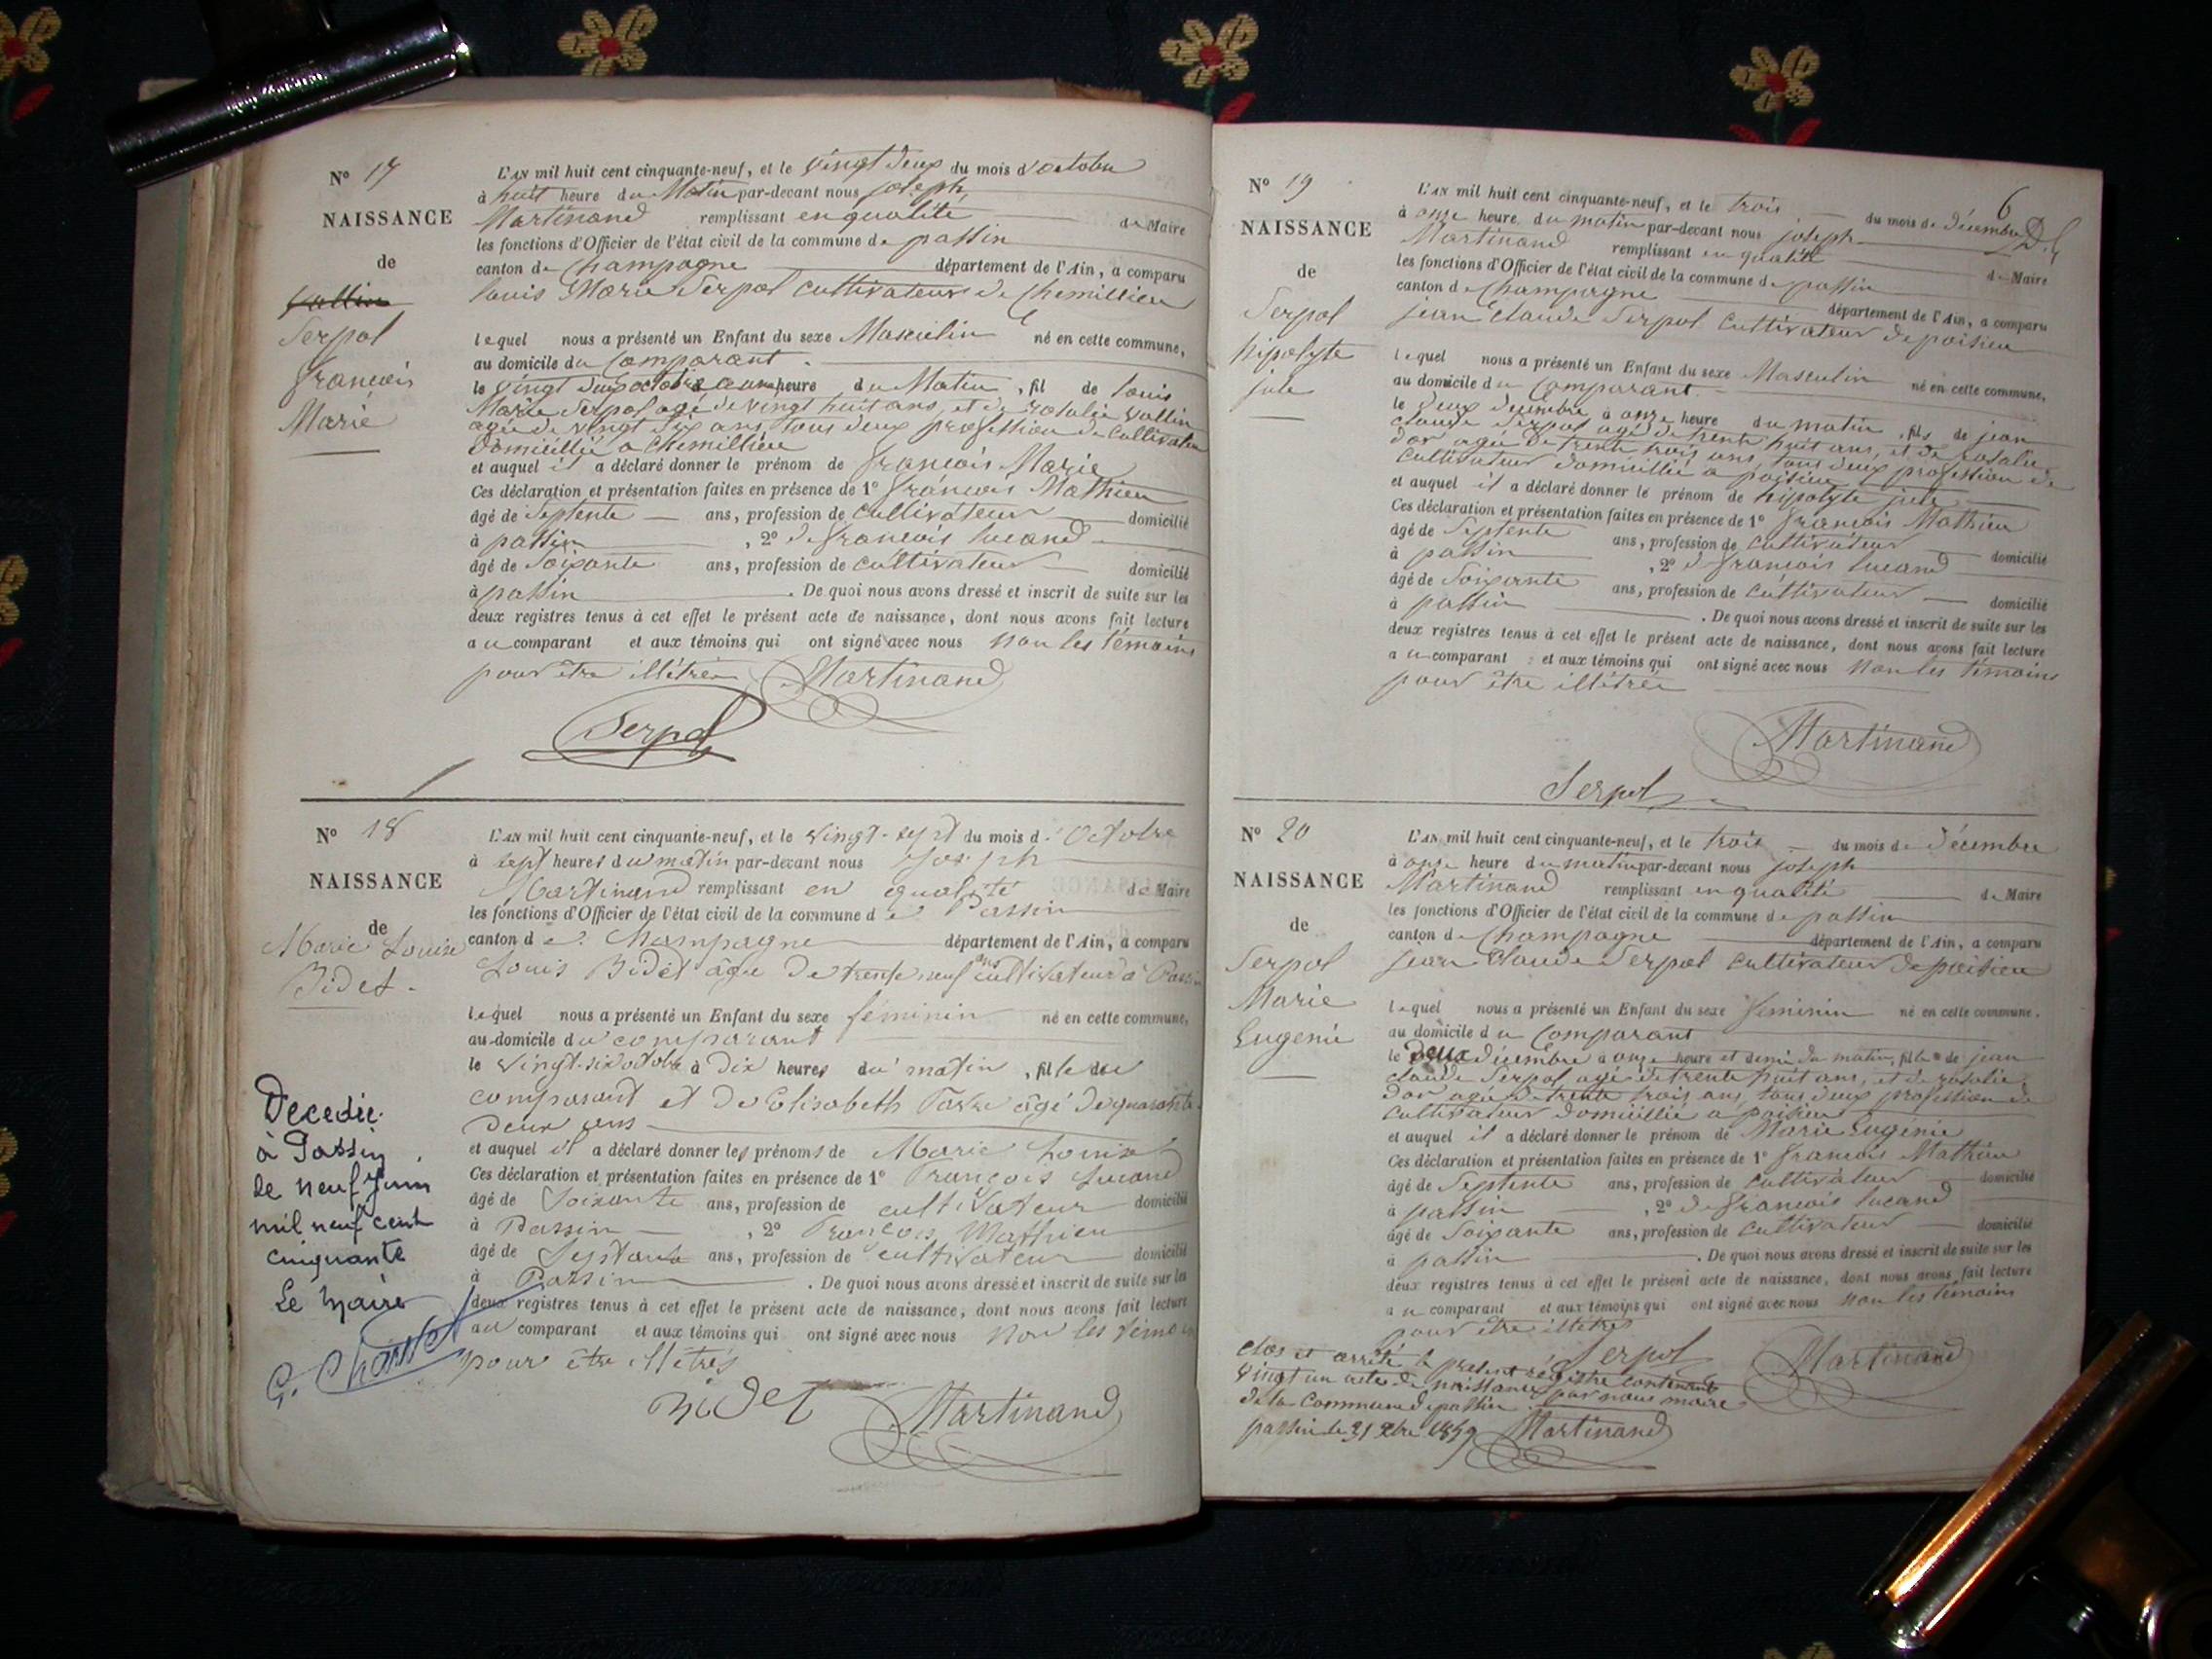 N° 17
NAISSANCE
de
Vallin
Serpol
françois
Marie
L'AN mil huit cent cinquante-neuf, et le vingt deux du mois d'octobre
à huit heure du Matin par-devant nous joseph
Martinand remplissant en qualité de Maire
les fonctions d'Officier de l'état civil de la commune de passin
canton de Champagne département de l'Ain, a comparu
louis Marie Serpol cultivateur de Chemillieu
lequel nous a présenté un Enfant du sexe Masculin né en cette commune,
au domicile du Comparant
le vingt deux octobre a heure du Matin, fil de louis
Marie Serpol agé de vingt huit ans, et de Vallin
agée de vingt six ans, tous deux profession de Cultivateur
Domicillié a Chemillieu
et auquel il a déclaré donner le prénom de françois Marie
Ces déclaration et présentation faites en présence de 1° françois Mathieu
âgé de Septente ans, profession de Cultivateur domicilié
à passin, 2° de françois lucand
âgé de Soixante ans, profession de cultivateur domicilié
à passin. De quoi nous avons dressé et inscrit de suite sur les
deux registres tenus à cet effet le présent acte de naissance, dont nous avons fait lecture
au comparant et aux témoins qui ont signé avec nous Non les témoins
pour être illétrés Martinand
Serpol
N° 18
NAISSANCE
de
Marie Louise
Bidet.
L'AN mil huit cent cinquante-neuf, et le vingt-sept du mois d'Octobre
à sept heures du matin par-devant nous Joseph
Martinand remplissant en qualité de Maire
les fonctions d'Officier de l'état civil de la commune de Passin
canton de Champagne département de l'Ain, a comparu
Louis Bidet âgé de trente neuf ans cultivateur à Passin
lequel nous a présenté un Enfant du sexe féminin né en cette commune,
au domicile du comparant
le vingt-six octobre à dix heures du matin, fille du
comparant et de Elisabeth âgé de quarante
deux ans
et auquel il a déclaré donner les prénoms de Marie Louise
Ces déclaration et présentation faites en présence de 1° François Lucand
âgé de Soixante ans, profession de cultivateur domicilié
à Passin, 2° François Mathieu
âgé de Septante ans, profession de cultivateur domicilié
à Passin. De quoi nous avons dressé et inscrit de suite sur les
deux registres tenus à cet effet le présent acte de naissance, dont nous avons fait lecture
au comparant et aux témoins qui ont signé avec nous Non les témoins
pour être illétrés
Bidet Martinand
Decedée
à Passin,
le neuf Juin
mil neuf cent
cinquante
Le Maire
6
N° 19
NAISSANCE
de
Serpol
hipolyte
jule
L'AN mil huit cent cinquante-neuf, et le trois du mois de décembre
à onze heure du matin par-devant nous joseph
Martinand remplissant en qualité de Maire
les fonctions d'Officier de l'état civil de la commune de passin
canton de Champagne département de l'Ain, a comparu
jean Claude Serpol Cultivateur de poisieu
lequel nous a présenté un Enfant du sexe Masculin né en cette commune,
au domicile du Comparant
le deux décembre à onze heure du matin, fils de jean
claude Serpol agé de trente huit ans, et de rosalie
Dor agée de trente trois ans, tous deux profession de
cultivateur domicillié a poisieu
et auquel il a déclaré donner le prénom de hipolyte jule
Ces déclaration et présentation faites en présence de 1° françois Mathieu
âgé de Septente ans, profession de Cultivateur domicilié
à passin, 2° de françois lucand
âgé de Soixante ans, profession de Cultivateur domicilié
à passin. De quoi nous avons dressé et inscrit de suite sur les
deux registres tenus à cet effet le présent acte de naissance, dont nous avons fait lecture
au comparant et aux témoins qui ont signé avec nous Non les témoins
pour être illétrés
Martinand
Serpol
N° 20
NAISSANCE
de
Serpol
Marie
Eugenie
L'AN mil huit cent cinquante-neuf, et le trois du mois de décembre
à onze heure du matin par-devant nous joseph
Martinand remplissant en qualité de Maire
les fonctions d'Officier de l'état civil de la commune de passin
canton de Champagne département de l'Ain, a comparu
jean Claude Serpol cultivateur de poisieu
lequel nous a présenté un Enfant du sexe féminin né en cette commune,
au domicile du Comparant
le deux décembre à onze heure et demi du matin, fille de jean
claude Serpol agé de trente huit ans, et de rosalie
Dor agée de trente trois ans, tous deux profession de
Cultivateur domicillié a poisieu
et auquel il a déclaré donner le prénom de Marie Eugenie
Ces déclaration et présentation faites en présence de 1° françois Mathieu
âgé de Septente ans, profession de Cultivateur domicilié
à passin, 2° de françois lucand
âgé de Soixante ans, profession de Cultivateur domicilié
à passin. De quoi nous avons dressé et inscrit de suite sur les
deux registres tenus à cet effet le présent acte de naissance, dont nous avons fait lecture
au comparant et aux témoins qui ont signé avec nous Non les témoins
pour être illétrés
Serpol Martinand
Clos et arrété le présent régistre contenant
vingt un acte de naissance par nous maire
de la Commune de passin
passin le 31 Xbre 1859 Martinand